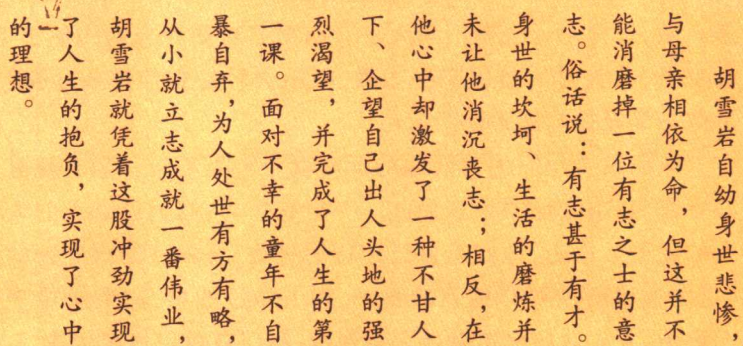 胡雪岩自幼身世悲惨，
与母亲相依为命，但这并不
能消磨掉一位有志之士的意
志。俗话说：有志甚于有才。
身世的坎坷、生活的磨炼并
未让他消沉丧志；相反，在
他心中却激发了一种不甘人
下、企望自己出人头地的强
烈渴望，并完成了人生的第
一课。面对不幸的童年不自
暴自弃，为人处世有方有略，
从小就立志成就一番伟业，
胡雪岩就凭着这股冲劲实现
了人生的抱负，实现了心中
的理想。